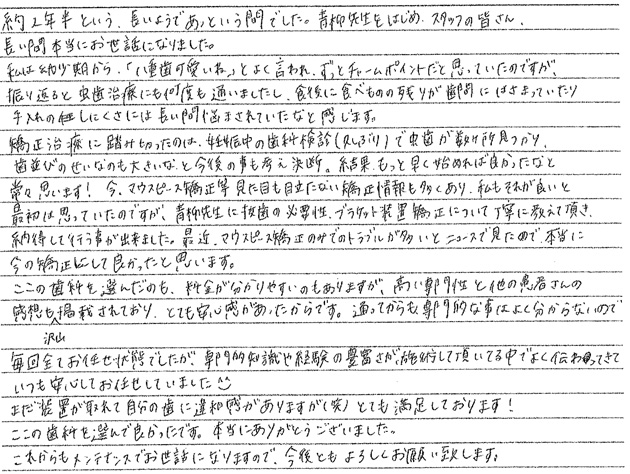 約2年半という、長いようであっという間でした。青柳先生をはじめ、スタッフの皆さん、
長い間本当にお世話になりました。
私は幼少期から、「八重歯可愛いね」とよく言われ、ずっとチャームポイントだと思っていたのですが、
振り返ると虫歯治療にも何度も通いましたし、食後に食べものの残りが歯間にはさまっていたり
手入れのしにくさには長い間悩まされていたなと感じます。
矯正治療に踏み切ったのは、妊娠中の歯科検診(久しぶり)で虫歯が数ヶ所見つかり、
歯並びのせいなのも大きいな、と今後の事も考え決断。結果、もっと早く始めれば良かったなと
常々思います！今、マウスピース矯正等見た目も目立たない矯正情報も多くあり、私もそれが良いと
最初は思っていたのですが、青柳先生に抜歯の必要性、ブラケット装置矯正について丁寧に教えて頂き、
納得して行う事が出来ました。最近、マウスピース矯正のみでのトラブルが多いとニュースで見たので、本当に
今の矯正にして良かったと思います。
ここの歯科を選んだのも、料金が分かりやすいのもありますが、高い専門性と他の患者さんの
感想も沢山掲載されており、とても安心感があったからです。通ってからも専門的な事はよく分からないので
毎回全てお任せ状態でしたが、専門的知識や経験の豊富さが、施術して頂いてる中でよく伝わってきて
いつも安心してお任せしていました
まだ装置が取れて自分の歯に違和感がありますが(笑)とても満足しております！
ここの歯科を選んで良かったです。本当にありがとうございました。
これからもメンテナンスでお世話になりますので、今後ともよろしくお願い致します。